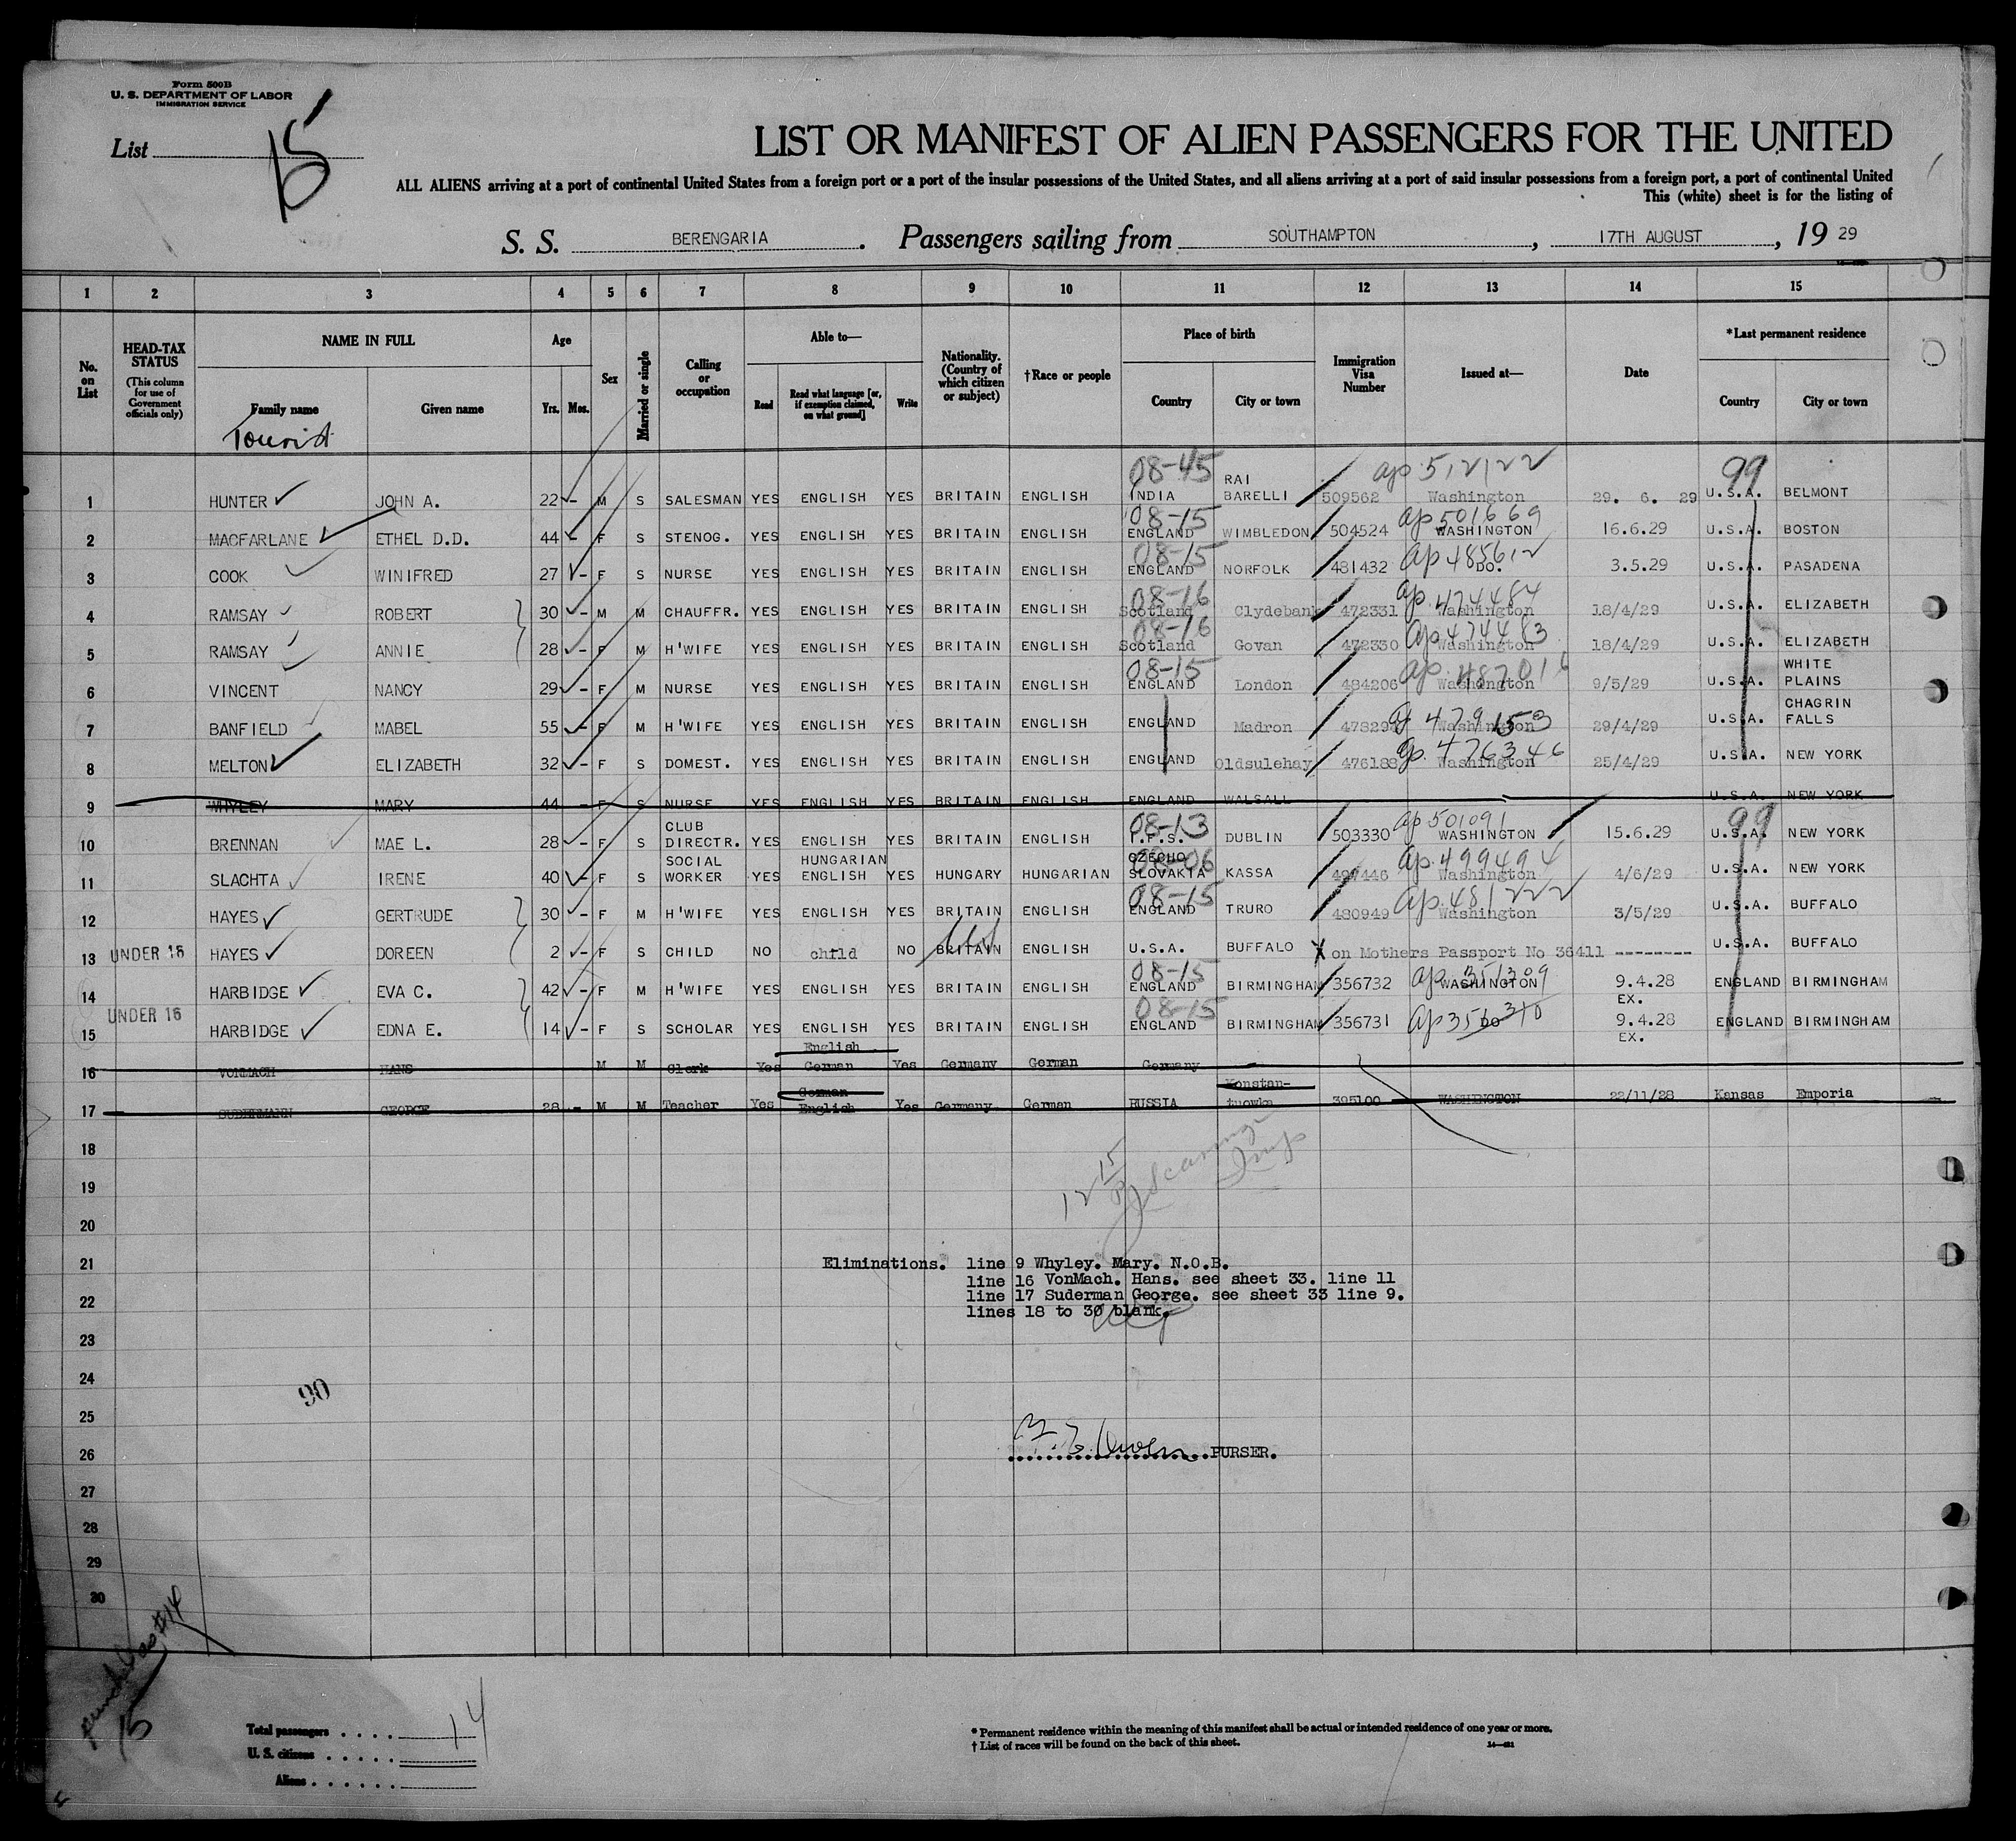 Form 500B
U. S. DEPARTMENT OF LABOR
IMMIGRATION SERVICE
List 15
LIST OR MANIFEST OF ALIEN PASSENGERS FOR THE UNITED
ALL ALIENS arriving at a port of continental United States from a foreign port or a port of the insular possessions of the United States, and all aliens arriving at a port of said insular possessions from a foreign port, a port of continental United
This (white) sheet is for the listing of
S. S. BERENGARIA. Passengers sailing from SOUTHAMPTON, 17TH AUGUST, 19 29
1 2 3 4 5 6 7 8 9 10 11 12 13 14 15
No. on List
HEAD-TAX STATUS (This column for use of Government officials only)
NAME IN FULL
Family name Given name
Tourist
Age Yrs. Mos.
Sex
Married or single
Calling or occupation
Able to—
Read Read what language [or, if exemption claimed, on what ground] Write
Nationality. (Country of which citizen or subject)
†Race or people
Place of birth
Country City or town
Immigration Visa Number
Issued at—
Date
*Last permanent residence
Country City or town
1 HUNTER JOHN A. 22 - M S SALESMAN YES ENGLISH YES BRITAIN ENGLISH 08-45 INDIA RAI BARELLI 509562 ap 512122 Washington 29. 6. 29 99 U.S.A. BELMONT
2 MACFARLANE ETHEL D.D. 44 - F S STENOG. YES ENGLISH YES BRITAIN ENGLISH 08-15 ENGLAND WIMBLEDON 504524 ap 501669 WASHINGTON 16.6.29 U.S.A. BOSTON
3 COOK WINIFRED 27 - F S NURSE YES ENGLISH YES BRITAIN ENGLISH 08-15 ENGLAND NORFOLK 481432 ap 485612 DO. 3.5.29 U.S.A. PASADENA
4 RAMSAY ROBERT 30 - M M CHAUFFR. YES ENGLISH YES BRITAIN ENGLISH 08-16 Scotland Clydebank 472331 ap 474484 Washington 18/4/29 U.S.A. ELIZABETH
5 RAMSAY ANNIE 28 - F M H'WIFE YES ENGLISH YES BRITAIN ENGLISH 08-16 Scotland Govan 472330 ap 474483 Washington 18/4/29 U.S.A. ELIZABETH
6 VINCENT NANCY 29 - F M NURSE YES ENGLISH YES BRITAIN ENGLISH 08-15 ENGLAND London 484206 ap 487016 Washington 9/5/29 U.S.A. WHITE PLAINS
7 BANFIELD MABEL 55 - F M H'WIFE YES ENGLISH YES BRITAIN ENGLISH ENGLAND Madron 47829 ap 479153 Washington 29/4/29 U.S.A. CHAGRIN FALLS
8 MELTON ELIZABETH 32 - F S DOMEST. YES ENGLISH YES BRITAIN ENGLISH ENGLAND Oldsulehay 476188 ap 476346 Washington 25/4/29 U.S.A. NEW YORK
9 WHYLEY MARY 44 - F S NURSE YES ENGLISH YES BRITAIN ENGLISH ENGLAND WALSALL U.S.A. NEW YORK
10 BRENNAN MAE L. 28 - F S CLUB DIRECTR. YES ENGLISH YES BRITAIN ENGLISH 08-13 I.F.S. DUBLIN 503330 ap 501091 WASHINGTON 15.6.29 99 U.S.A. NEW YORK
11 SLACHTA IRENE 40 - F S SOCIAL WORKER YES HUNGARIAN ENGLISH YES HUNGARY HUNGARIAN CZECHO 08-06 SLOVAKIA KASSA 497446 ap 499494 Washington 4/6/29 U.S.A. NEW YORK
12 HAYES GERTRUDE 30 - F M H'WIFE YES ENGLISH YES BRITAIN ENGLISH 08-15 ENGLAND TRURO 480949 ap 481222 Washington 3/5/29 U.S.A. BUFFALO
13 UNDER 16 HAYES DOREEN 2 - F S CHILD NO child NO BRITAIN ENGLISH U.S.A. BUFFALO X on Mothers Passport No 36411 -------- U.S.A. BUFFALO
14 HARBIDGE EVA C. 42 - F M H'WIFE YES ENGLISH YES BRITAIN ENGLISH 08-15 ENGLAND BIRMINGHAM 356732 ap 351309 WASHINGTON 9.4.28 EX. ENGLAND BIRMINGHAM
15 UNDER 16 HARBIDGE EDNA E. 14 - F S SCHOLAR YES ENGLISH YES BRITAIN ENGLISH 08-15 ENGLAND BIRMINGHAM 356731 DO 9.4.28 EX. ENGLAND BIRMINGHAM
16 VONMACH HANS M M Clerk Yes English German Yes Germany German Germany
17 SUDERMANN GEORGE 28 - M M Teacher Yes German English Yes Germany German RUSSIA 395100 WASHINGTON 22/11/28 Kansas Emporia
18
19
20
21
22
23
24
25
26
27
28
29
30
Eliminations. line 9 Whyley. Mary. N.O.B.
line 16 VonMach. Hans. see sheet 33. line 11
line 17 Suderman George. see sheet 33 line 9.
lines 18 to 30 blank.
90
PURSER.
15
Total passengers . . . . 14
U. S. citizens . . . . .
Aliens . . . . . .
* Permanent residence within the meaning of this manifest shall be actual or intended residence of one year or more.
† List of races will be found on the back of this sheet.